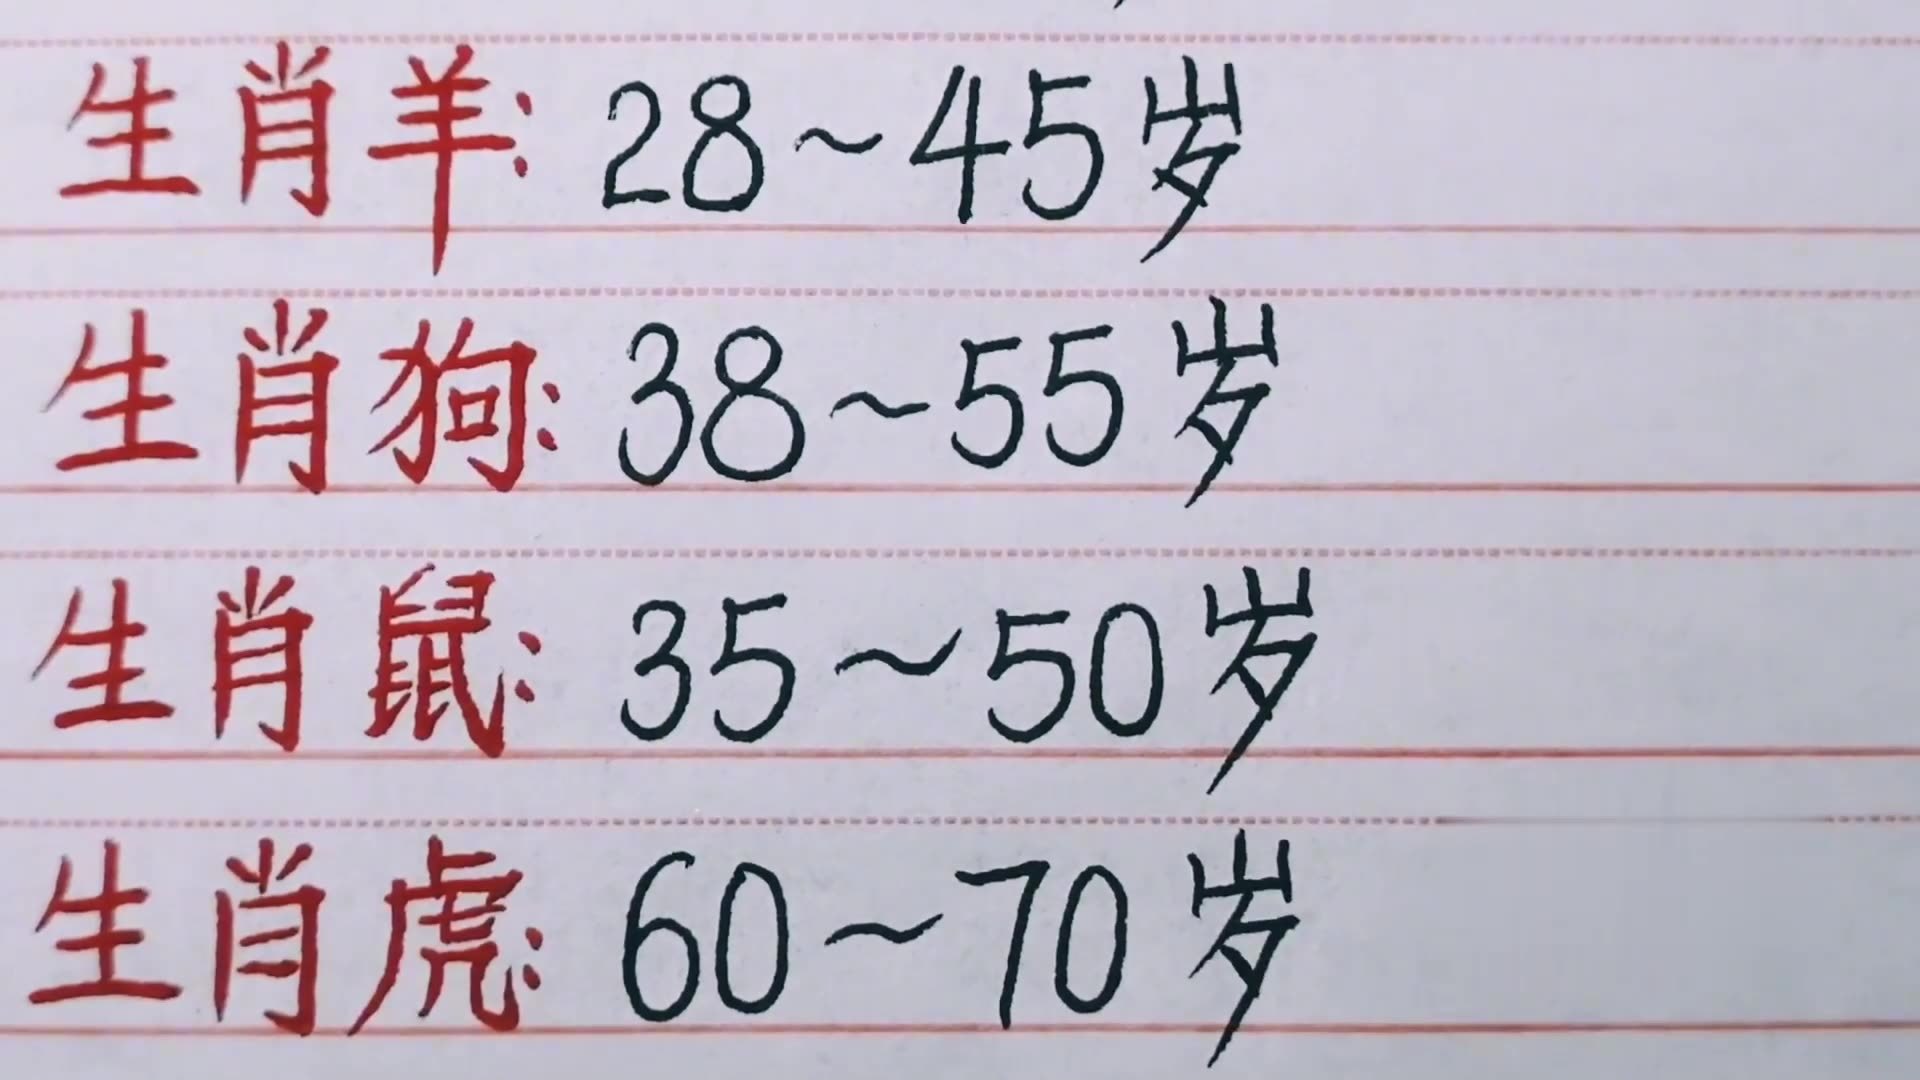 生肖羊: 28~45岁
生肖狗: 38~55岁
生肖鼠: 35~50岁
生肖虎: 60~70岁